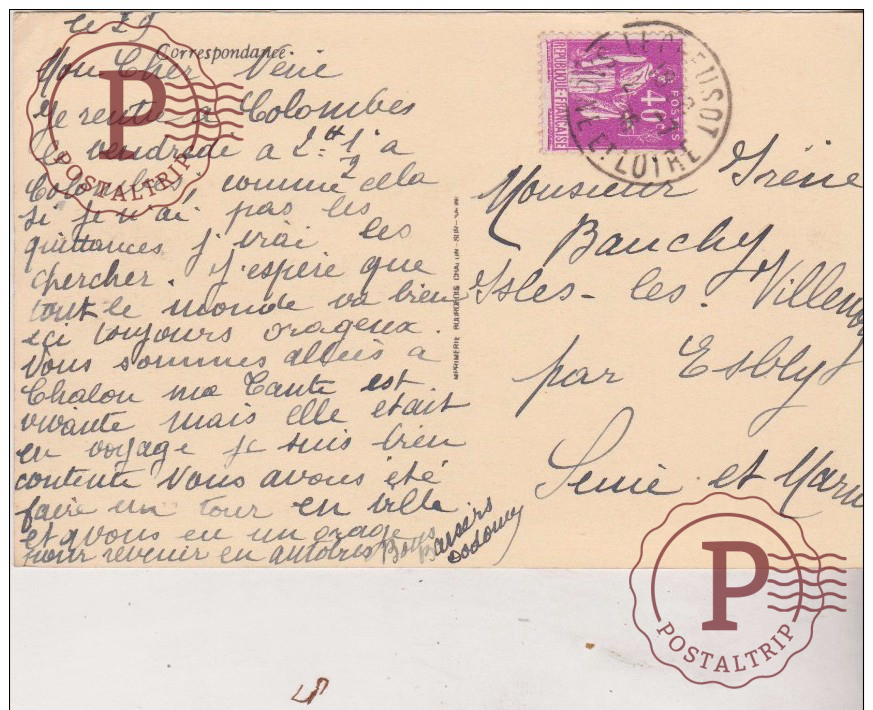 le 29
Correspondance.
Mon Cher Néné
Je rentre à Colombes
le vendredi a 2h 1/2 a
Colombes, comme cela
si je n'ai pas les
quittances j'irai les
chercher. J'espère que
tout le monde va bien
ici toujours orageux.
Nous sommes allées à
Chalon ma Tante est
vivante mais elle était
en voyage je suis bien
contente Nous avons été
faire un tour en ville
et avons eu un orage
pour revenir en autobus Bons
Baisers
IMPRIMERIE CHALON-SUR-SAONE
REPUBLIQUE FRANÇAISE
POSTES
40
LE CREUSOT
SAONE ET LOIRE
Monsieur Irène
Bauchy
Isles-les-Villenoy
par Esbly
Seine et Marne
P
POSTALTRIP
P
POSTALTRIP